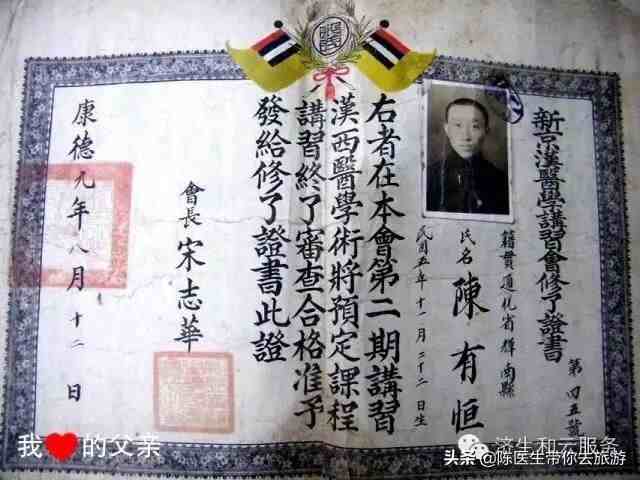 新京漢醫學講習會修了證書
第四五號
籍貫通化省輝南縣
氏名 陳有恒
民國五年十一月二十二日生
右者在本會第二期講習
漢西醫學術將預定課程
講習終了審查合格准予
發給修了證書此證
會長 宋志華
康德九年八月十二日
我的父亲
济生和云服务
头条@陈医生带你去旅游